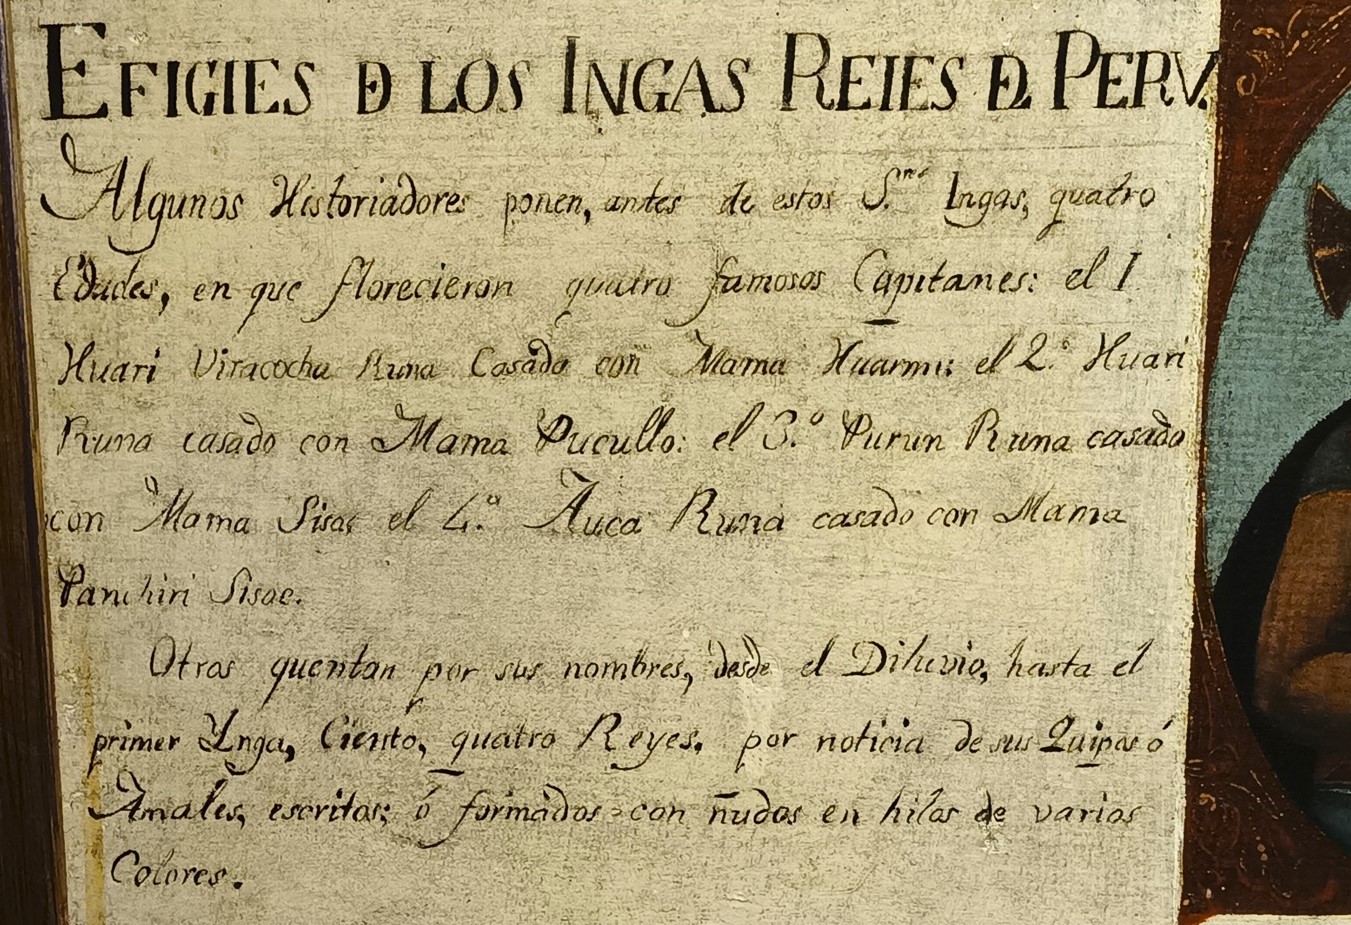 EFIGIES D LOS INGAS REIES D PERV.
Algunos Historiadores ponen, antes de estos S.res Ingas, quatro
Edades, en que florecieron quatro famosos Capitanes: el I
Huari Viracocha Runa Casado con Mama Huarmi: el 2.º Huari
Runa casado con Mama Pucullo: el 3.º Purun Runa casado
con Mama Sisac el 4.º Auca Runa casado con Mama
Panchiri Sisac.
Otros quentan por sus nombres, desde el Diluvio, hasta el
primer Ynga, Ciento, quatro Reyes, por noticia de sus Quipos ó
Anales, escritos; ó formados con ñudos en hilos de varios
Colores.